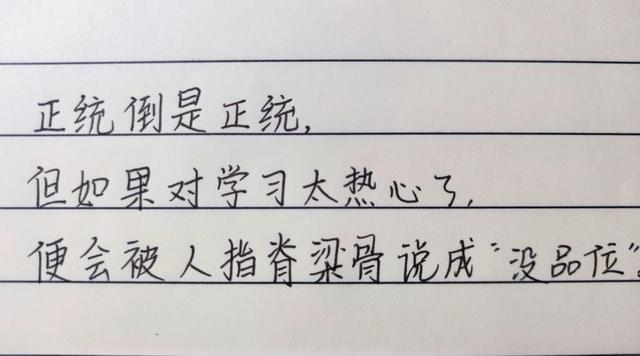 正统倒是正统，
但如果对学习太热心了，
便会被人指脊梁骨说成“没品位”。